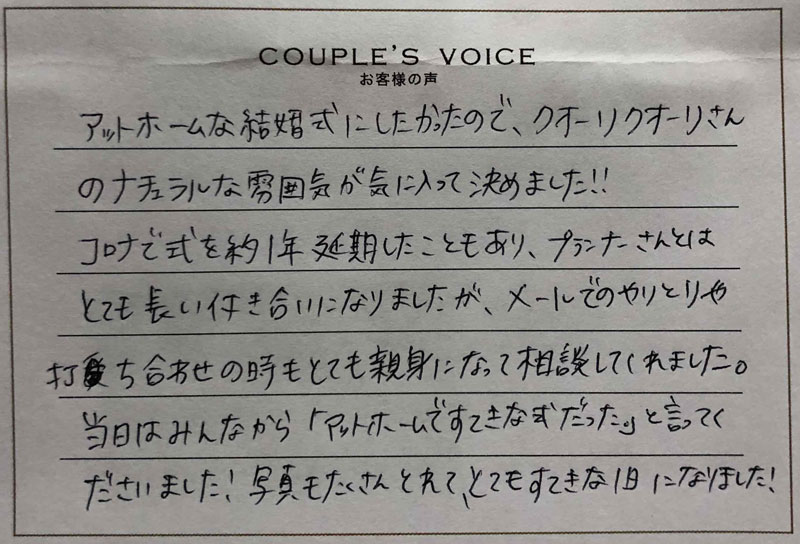 COUPLE'S VOICE
お客様の声
アットホームな結婚式にしたかったので、クオーリクオーリさん
のナチュラルな雰囲気が気に入って決めました!!
コロナで式を約1年延期したこともあり、プランナーさんとは
とても長い付き合いになりましたが、メールでのやりとりや
打ち合わせの時もとても親身になって相談してくれました。
当日はみんなから「アットホームですてきな式だった。」と言ってく
ださいました!写真もたくさんとれて、とてもすてきな1日になりました!